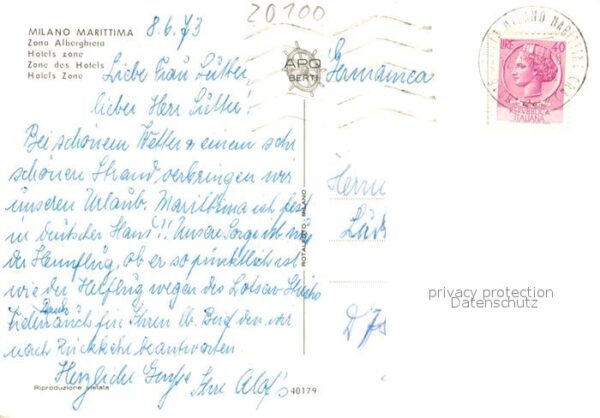 MILANO MARITTIMA
Zona Alberghiera
Hotels zone
Zone des Hotels
Hotels Zone
8.6.73
20100
Liebe Frau
lieber Herr
Bei schönem Wetter & einem sehr
schönen Strand, verbringen wir
unseren Urlaub. Marittima ist fest
in deutscher Hans!! Unsere Sorge ist nur
der Heimflug, ob er so pünktlich ist
wie der Hinflug wegen des Lotsen-Streiks
Dank für Ihren lb. Brief den wir
nach Rückkehr beantworten.
Herzliche Grüße Ihre
APO
BERTI
Germania
LIRE 40
REPUBBLICA
ITALIANA
MILANO MARITTIMA
Herrn
D 75
ROTALFOTO - MILANO
Riproduzione vietata
40179
privacy protection
Datenschutz